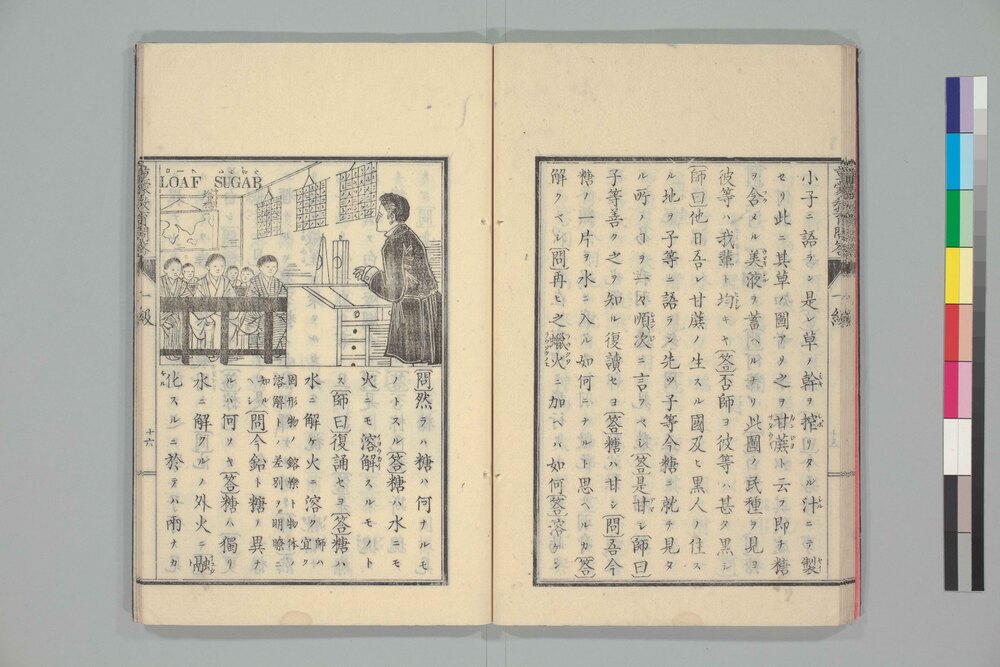 小子ニ語ラン是レ草ノ幹ヲ搾リタル汁ニテ製
セリ此ニ其草ノ圖アリ之ヲ甘蔗ト云フ即チ糖
ヲ含メル美液ヲ蓄ヘルナリ此圖ノ民種ヲ見ヨ
彼等ハ我輩ト均キヤ答否師ヨ彼等ハ甚タ黒シ
師曰他日吾レ甘蔗ノ生スル國及ヒ黒人ノ住ス
ル地ヲ子等ニ語ラン先ツ子等今糖ニ就テ見タ
ル所ノヿヲ一々順次ニ言フベシ答是甘シ師曰
子等善ク之ヲ知ル復讀セヨ答糖ハ甘シ問吾今
糖ノ一片ヲ水ニ入ル如何ニナルト思ヘルカ答
解クベシ問再ヒ之蠟火ニ加ヘバ如何答溶ケン
LOAF SUGAR
問然ラハ糖ハ何ナルモ
ノトスル答糖ハ水ニモ
火ニモ溶解スルモノト
ス師曰復誦セヨ答糖ハ
水ニ解ケ火ニ溶ク師ハ宜ク
固形物ノ鎔爍ト物体ノ
溶解トノ差別ヲ明瞭ニ
知ルヘシ問今鉛ト糖ノ異ナ
ルハ何ソヤ答糖ハ獨リ
水ニ解クルノ外火ニ融
化スルニ於テハ兩ナカ
一級
十六